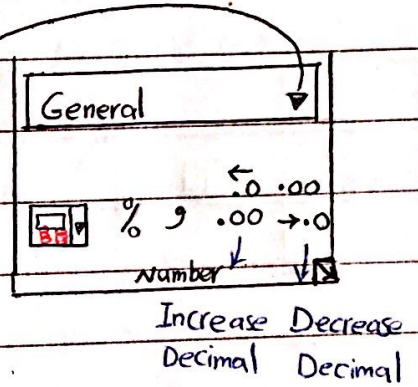 General
←.0 .00
% , .00 →.0
Number
Increase Decrease
Decimal Decimal